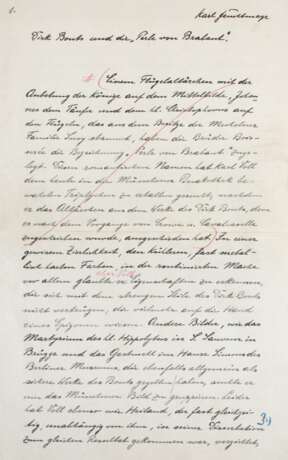 1.
Karl Feuchtmayr
Dirk Bouts und der „Perle von Brabant“.
Einem Flügelaltärchen mit der
Anbetung der Könige auf dem Mittelbilde, Johan-
nes dem Täufer und dem hl. Christophorus auf
den Flügeln, das aus dem Besitze der Mechelner
Familie Snoy stammt, haben die Brüder Bois-
serée die Bezeichnung „Perle von Brabant“ beige-
legt. Diesen Namen hat Karl Voll
dem heute in der Münchener Pinakothek be-
wahrten Triptychon zu erhalten gesucht, nachdem
er das Altärchen aus dem Werke des Dirk Bouts, dem
es nach dem Vorgange von Crowe u. Cavalcaselle
zugewiesen wurde, ausgeschieden hat. In einer
gewissen Zierlichkeit, den kühleren, fast metal-
lisch harten Farben, in der
vor allem glaubte er Eigenschaften zu erkennen,
die sich mit dem strengen Stile des Dirk Bouts
nicht vertrügen, die vielmehr auf die Hand
eines Epigonen wiesen. Andere Bilder, wie das
Martyrium des hl. Hippolytus in S. Sauveur in
Brügge und das Gastmahl im Hause Simons des
Berliner Museums, die ebenfalls allgemein als
sichere Werke des Bouts gegolten haben, suchte er
um das Münchener Bild zu gruppieren. Leider
hat Voll ebenso wie Heiland, der fast gleichzei-
tig, unabhängig von ihm, in seiner Dissertation
zum gleichen Resultat gekommen war, verzichtet,